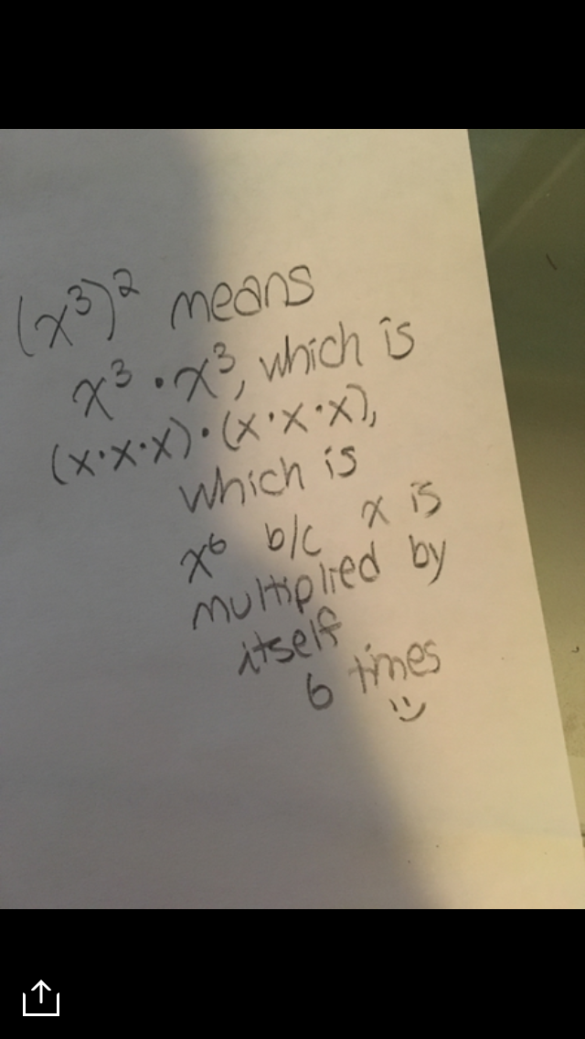 (x³)² means
x³ · x³, which is
(x·x·x)·(x·x·x),
which is
x⁶ b/c x is
multiplied by
itself
6 times
:)